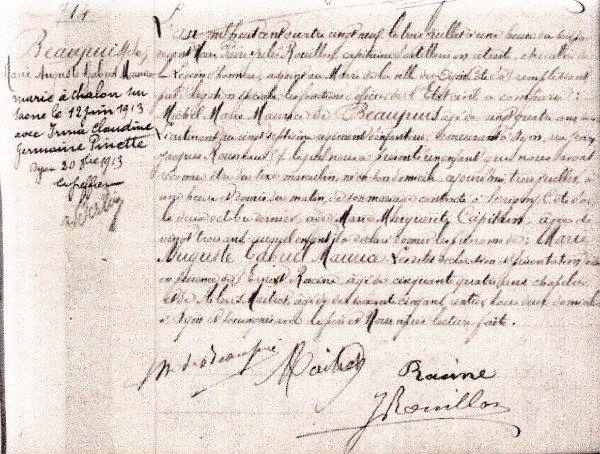 714
Beaupuis de
Marie Auguste Gabriel Maurice
marié à Chalon sur
Saone le 12 juin 1913
avec Irma Claudine
Germaine Pinette
Dijon 20 1913
Le greffier
L'an mil huit cent quatre vingt neuf, le trois juillet à une heure du soir
devant Nous Jules Rouillon, capitaine d'artillerie en retraite, chevalier de
la Légion d'honneur, adjoint au Maire de la ville de Dijon remplissant
par délégation spéciale les fonctions d'officier de l'Etat civil a comparu:
Michel Marie Maurice de Beaupuis, âgé de vingt quatre ans,
lieutenant au vingt septième régiment d'infanterie, demeurant à Dijon, rue Jean
Jacques Rousseau, lequel nous a présenté un enfant que nous avons
reconnu être du sexe masculin, né en son domicile, aujourd'hui trois juillet, à
une heure et demie du matin, de son mariage contracté à Côte d'or
le deux octobre dernier, avec Marie Marguerite Capitain, âgée de
vingt trois ans, auquel enfant il a déclaré donner les prénoms de: Marie
Auguste Gabriel Maurice. Lesdites déclaration et présentation
en présence de Ernest Racine âgé de cinquante quatre ans
et de Maitret, âgé de soixante cinq ans, rentier, tous deux domiciliés
à Dijon et soussignés avec le père et Nous après lecture faite.
M. de Beaupuis Maitret Racine
J Rouillon